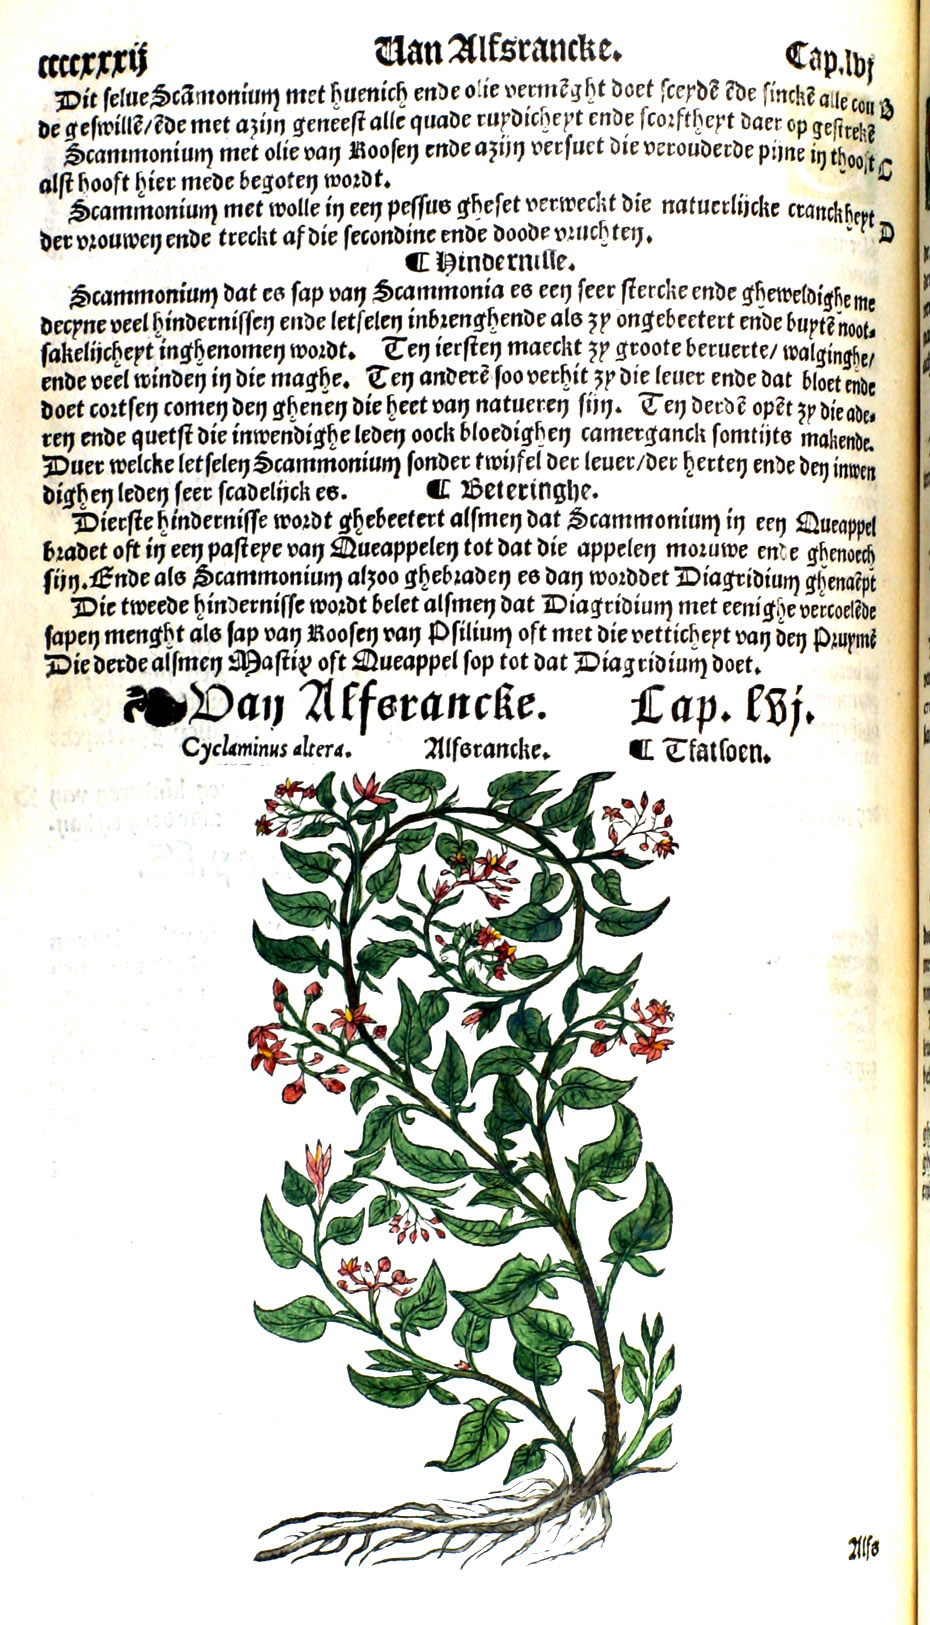 ccccxxxij Van Alfsrancke. Cap.lvj
Dit selue Scāmonium met huenich ende olie vermēght doet sceydē ēde sinckē alle cou B
de geswillē/ēde met azijn geneest alle quade ruydicheyt ende scorftheyt daer op gestrekē
Scammonium met olie van Roosen ende azijn versuet die verouderde pijne in thooft C
alst hooft hier mede begoten wordt.
Scammonium met wolle in een pessus gheset verweckt die natuerlijcke cranckheyt D
der vrouwen ende treckt af die secondine ende doode vruchten.
¶ Hindernisse.
Scammonium dat es sap van Scammonia es een seer stercke ende gheweldighe me
decyne veel hindernissen ende letselen inbrenghende als zy ongebeetert ende buytē noot⸗
sakelijcheyt inghenomen wordt. Ten iersten maeckt zy groote beruerte/ walginghe/
ende veel winden in die maghe. Ten anderē soo verhit zy die leuer ende dat bloet ende
doet cortsen comen den ghenen die heet van natueren sijn. Ten derdē opēt zy die ade⸗
ren ende quetst die inwendighe leden oock bloedighen camerganck somtijts makende.
Duer welcke letselen Scammonium sonder twijfel der leuer/der herten ende den inwen
dighen leden seer scadelijck es. ¶ Beteringhe.
Dierste hindernisse wordt ghebeetert alsmen dat Scammonium in een Queappel
bradet oft in een pasteye van Queappelen tot dat die appelen moruwe ende ghenoech
sijn. Ende als Scammonium alzoo ghebraden es dan worddet Diagridium ghenaēpt
Die tweede hindernisse wordt belet alsmen dat Diagridium met eenighe vercoelēde
sapen menght als sap van Roosen van Psilium oft met die vetticheyt van den Pruymē
Die derde alsmen Mastix oft Queappel sop tot dat Diagridium doet.
Van Alfsrancke. Cap. lvj.
Cyclaminus altera. Alfsrancke. ¶ Tfatsoen.
Alfs